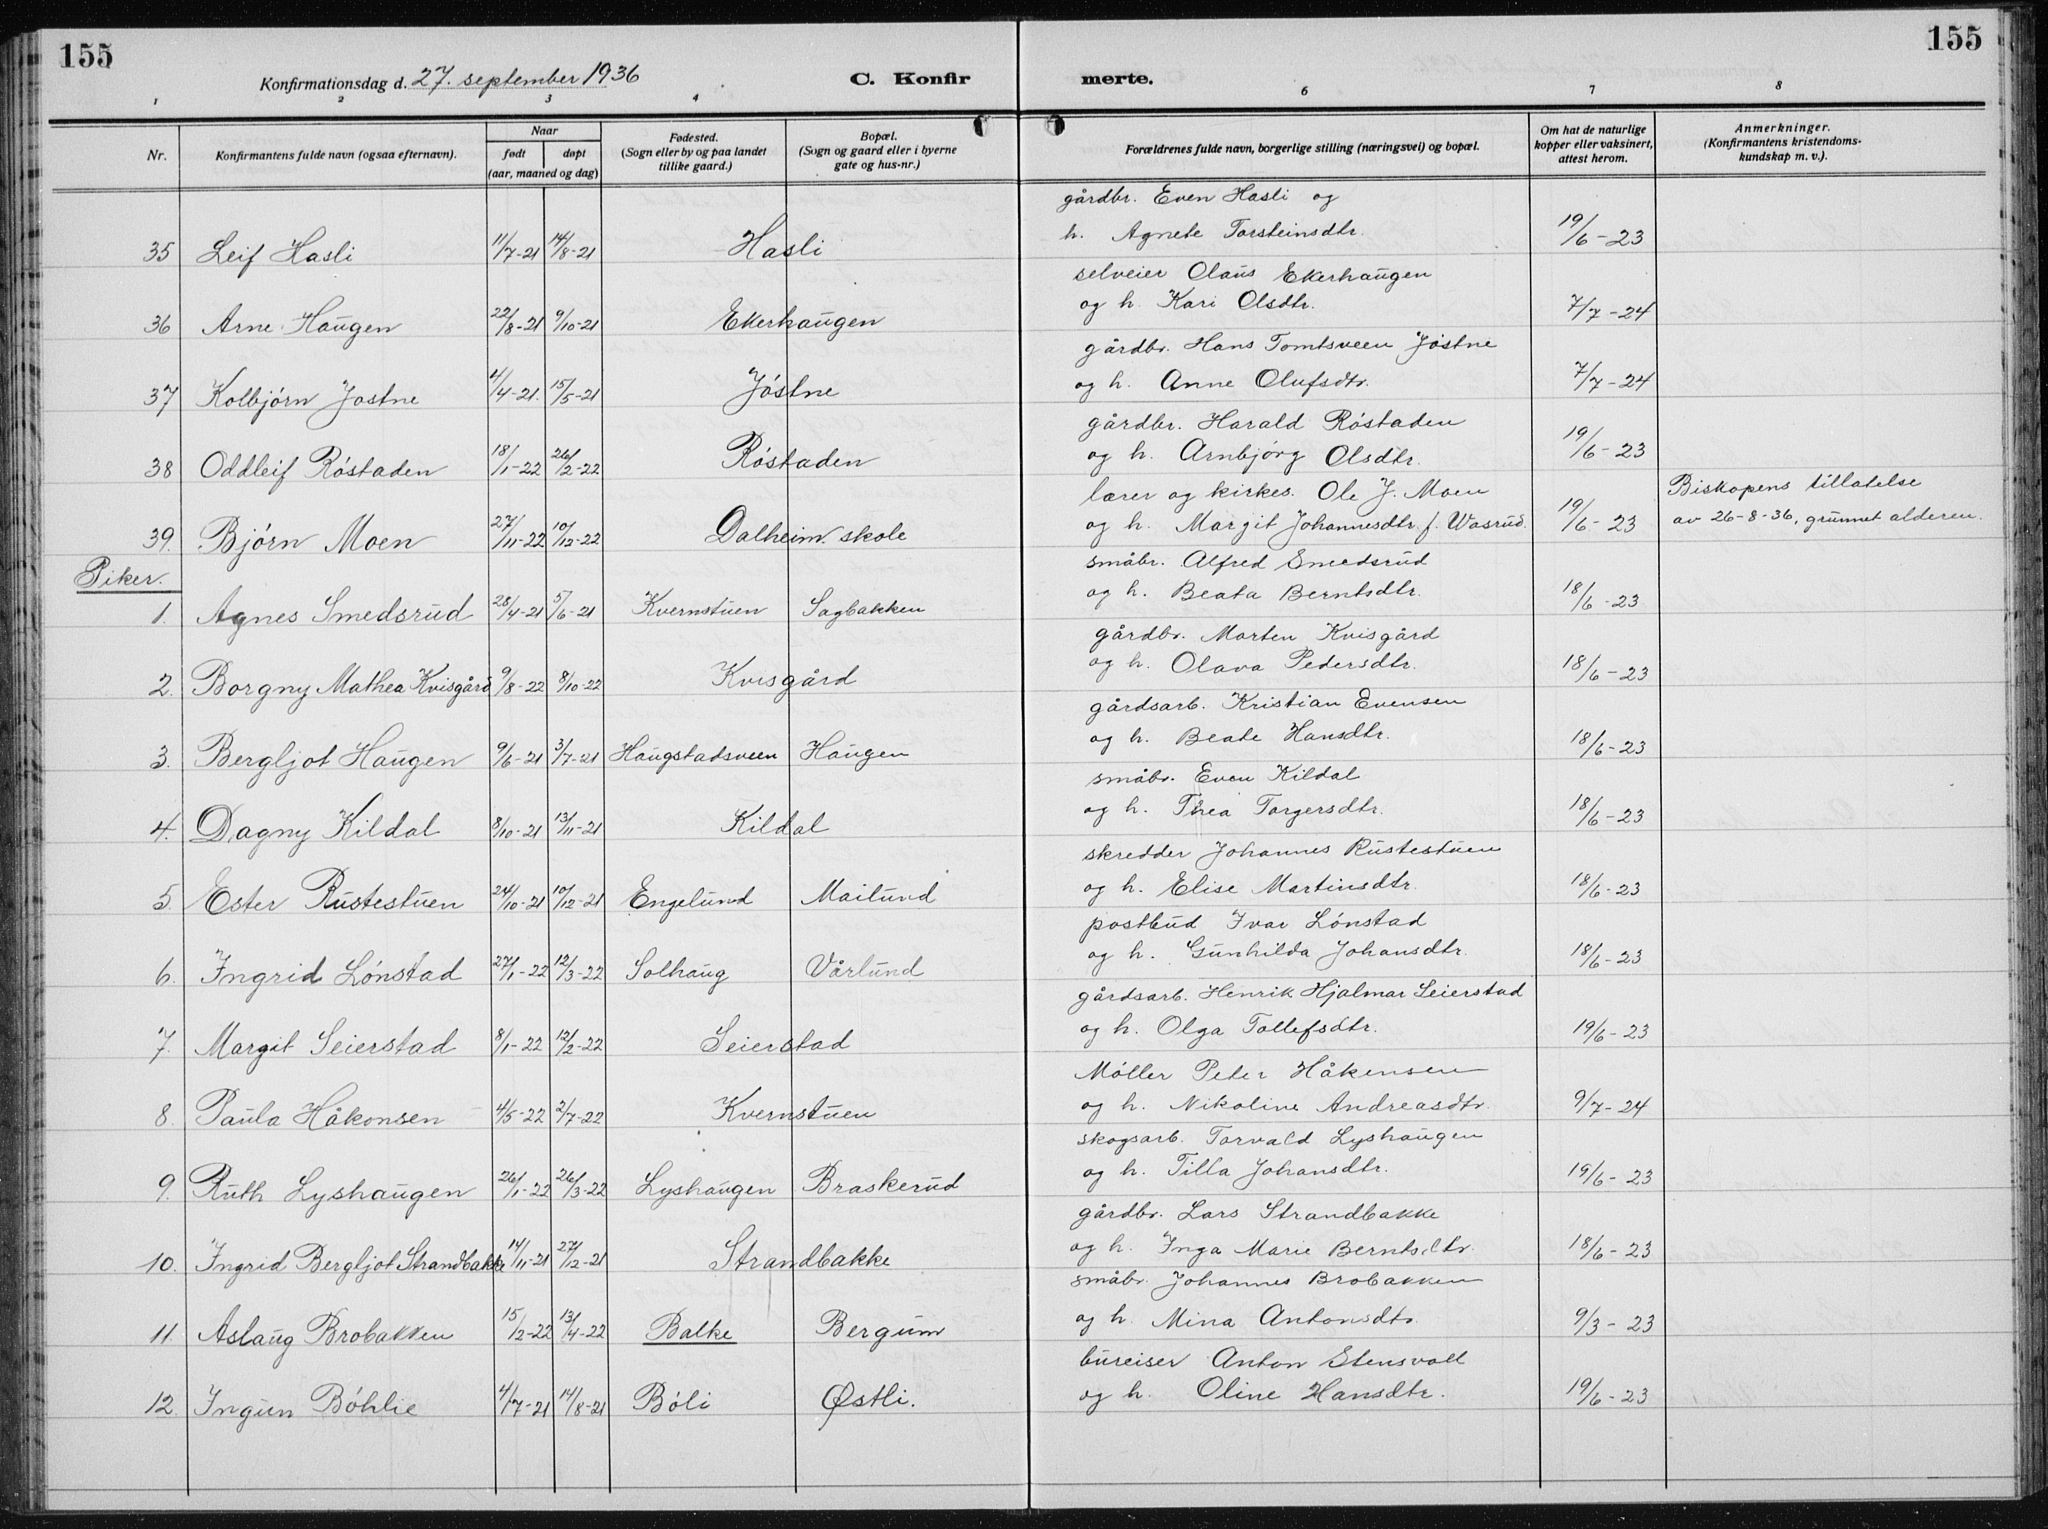 155
155
Konfirmationsdag d. 27. september 1936 C. Konfir merte.
1 2 3 4 6 7 8
Nr. Konfirmantens fulde navn (ogsaa efternavn). Naar født døpt (aar, maaned og dag) Fødested. (Sogn eller by og paa landet tillike gaard.) Bopæl. (Sogn og gaard eller i byerne gate og hus-nr.) Forældrenes fulde navn, borgerlige stilling (næringsvei) og bopæl. Om hat de naturlige kopper eller vaksinert, attest herom. Anmerkninger. (Konfirmantens kristendoms-kundskap m. v.).
gårdbr. Even Hasli og
35 Leif Hasli 11/7-21 14/8-21 Hasli h. Agnete Torsteinsdtr. 19/6-23
selveier Olaus Ekerhaugen
36 Arne Haugen 22/8-21 9/10-21 Ekerhaugen og h. Kari Olsdtr. 7/7-24
gårdbr. Hans Tomtsveen Jøstne
37 Kolbjørn Jøstne 4/4-21. 15/5-21 Jøstne og h. Anne Olufsdtr. 7/7-24
gårdbr. Harald Røstaden
38 Oddleif Røstaden 18/1-22 26/2-22 Røstaden og h. Arnbjørg Olsdtr. 19/6-23
lærer og kirkes. Ole J. Moen Biskopens tillatelse
39. Bjørn Moen 27/11-22 10/12-22 Dalheim skole og h. Margit Johannesdtr. f. Wasrud. 19/6-23 av 26-8-36, grunnet alderen.
Piker.
småbr. Alfred Smedsrud
1. Agnes Smedsrud 28/4-21 5/6-21 Kvernstuen Sagbakken og h. Beata Berntsdtr. 18/6-23
gårdbr. Morten Kvisgård
2. Borgny Mathea Kvisgård 9/8-22 8/10-22 Kvisgård og h. Olava Pedersdtr. 18/6-23
gårdsarb. Kristian Evensen
3. Bergljot Haugen 9/6-21 3/7-21 Haugstadsveen Haugen og h. Beate Hansdtr. 18/6-23
småbr. Even Kildal
4. Dagny Kildal 8/10-21 13/11-21 Kildal og h. Thea Torgersdtr. 18/6-23
skredder Johannes Rustestuen
5. Ester Rustestuen 24/10-21 10/12-21 Engelund Mailund og h. Elise Martinsdtr. 18/6-23
postbud Ivar Lønstad
6. Ingrid Lønstad 27/1-22 12/3-22 Solhaug Vårlund og h. Gunhilda Johansdtr. 18/6-23
gårdsarb. Henrik Hjalmar Seierstad
7. Margit Seierstad 8/1-22 12/2-22 Seierstad og h. Olga Tollefsdtr. 19/6-23
Møller Peter Håkensen
8. Paula Håkonsen 4/5-22 2/7-22 Kvernstuen og h. Nikoline Andreasdtr. 9/7-24
skogsarb. Torvald Lyshaugen
9. Ruth Lyshaugen 26/1-22 26/3-22 Lyshaugen Braskerud og h. Tilla Johansdtr. 19/6-23
gårdbr. Lars Strandbakke
10. Ingrid Bergljot Strandbakke 14/11-21 27/12-21 Strandbakke og h. Inga Marie Berntsdtr. 18/6-23
småbr. Johannes Brobakken
11. Aslaug Brobakken 15/2-22 13/4-22 Balke Bergum og h. Mina Antonsdtr. 9/3-23
bureiser Anton Stensvoll
12. Ingun Bøhlie 4/7-21 14/8-21 Bøli Østli. og h. Oline Hansdtr. 19/6-23